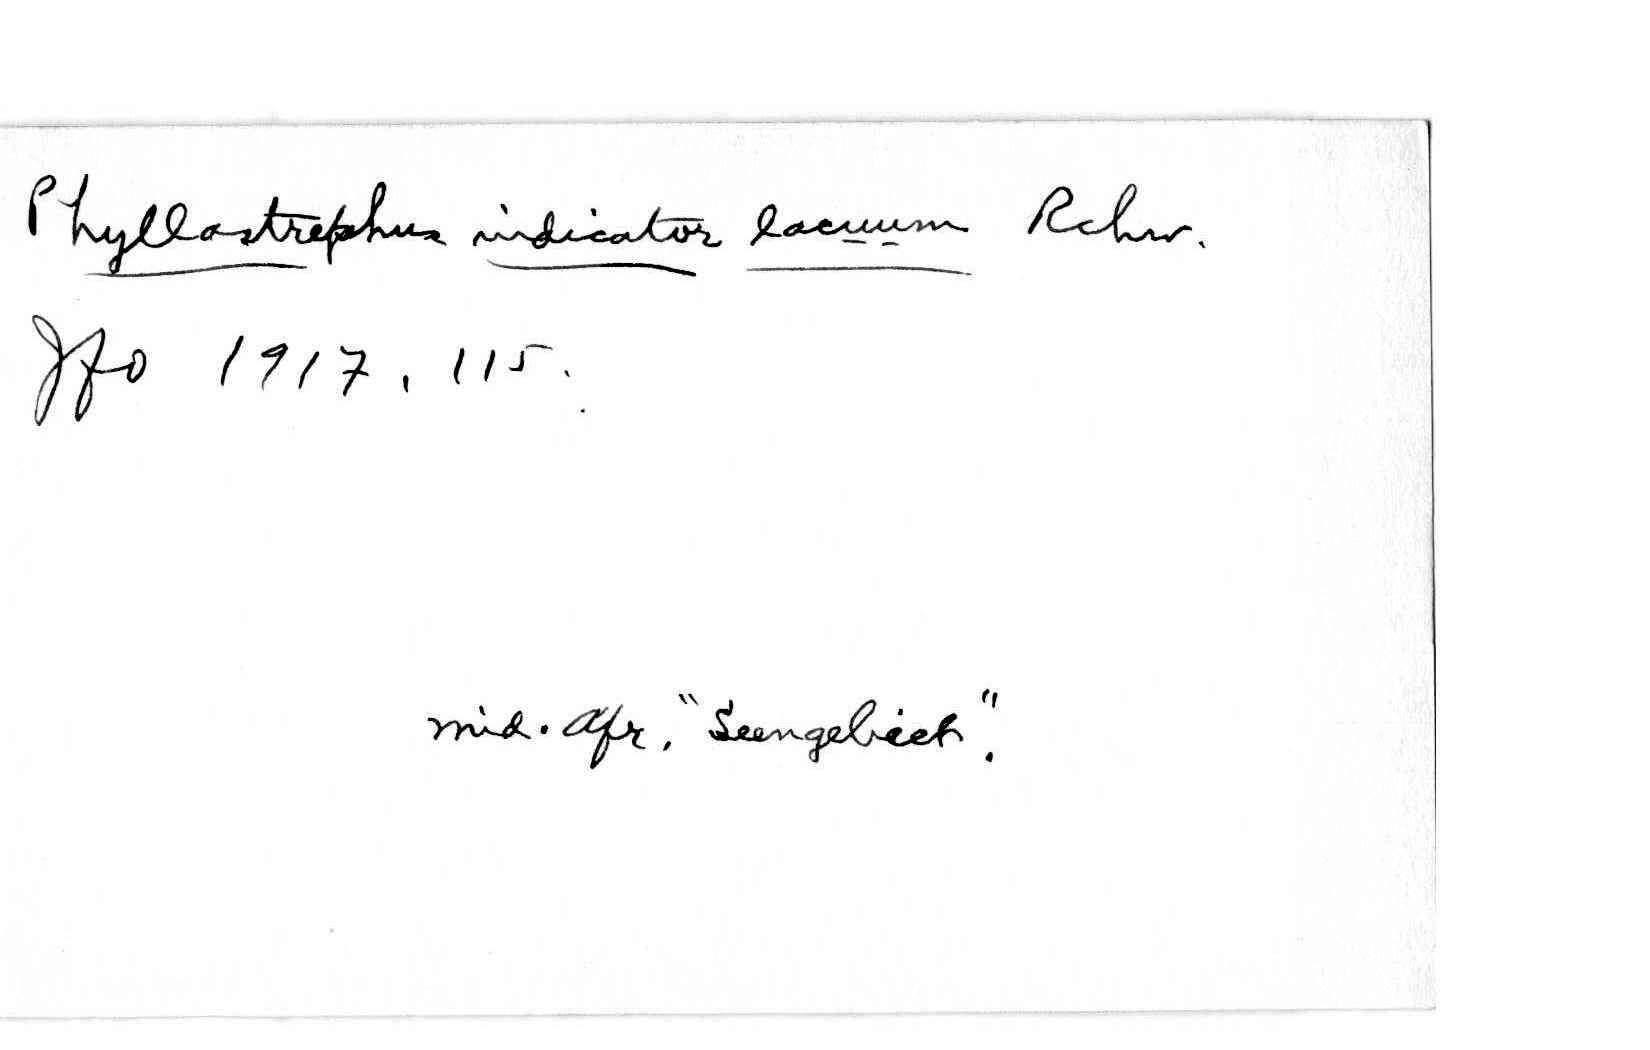 Phyllastrephus indicator lacuum Rchw.
JfO 1917, 115.
mid. Afr., "Seengebiet".